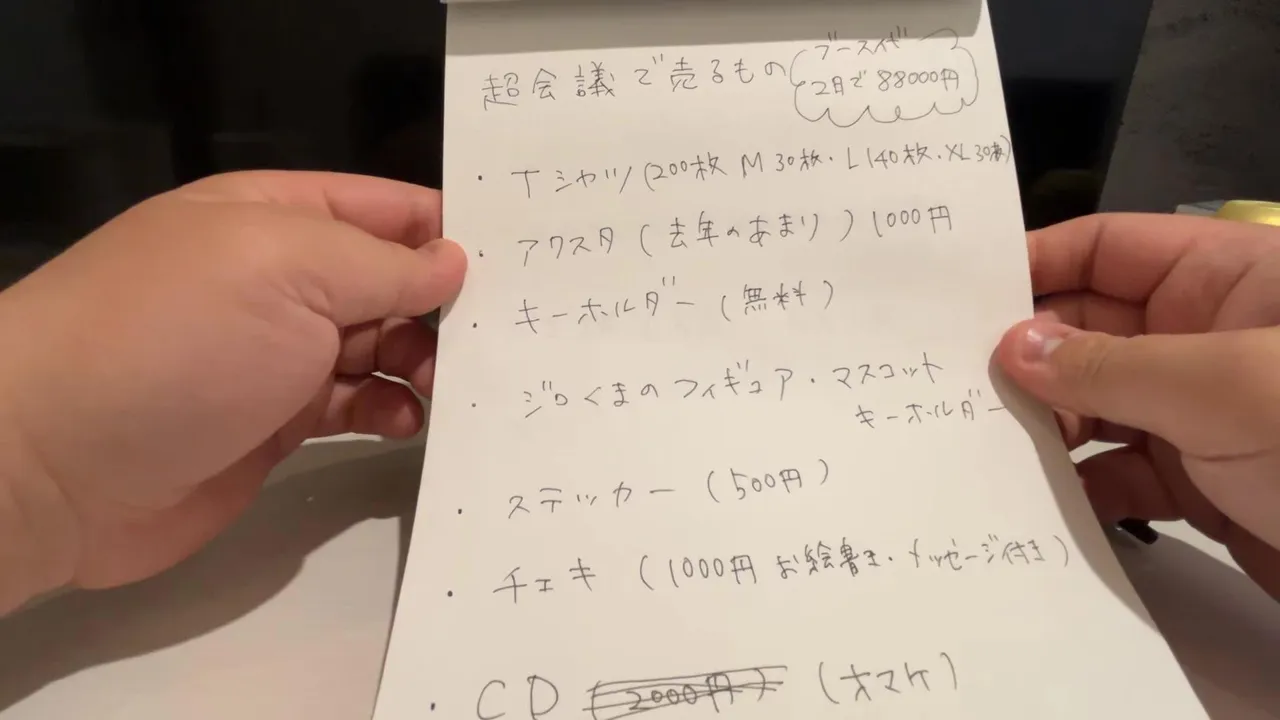 超会議で売るもの
ブース代
2日で88000円
・Tシャツ(200枚 M 30枚・L 140枚・XL 30枚)
・アクスタ(去年のあまり)1000円
・キーホルダー(無料)
・ジロくまのフィギュア・マスコット
キーホルダー
・ステッカー(500円)
・チェキ(1000円 お絵書き・メッセージ付き)
・CD (2000円) (オマケ)